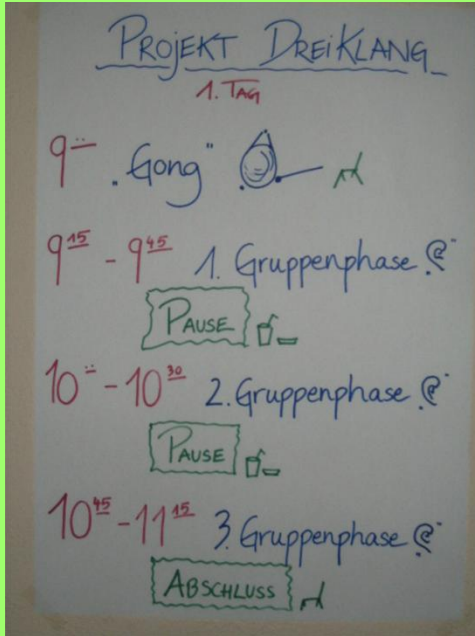 PROJEKT DREIKLANG
1. TAG
9 „Gong"
9 15 - 9 45 1. Gruppenphase
PAUSE
10 - 10 30 2. Gruppenphase
PAUSE
10 45 - 11 15 3. Gruppenphase
ABSCHLUSS